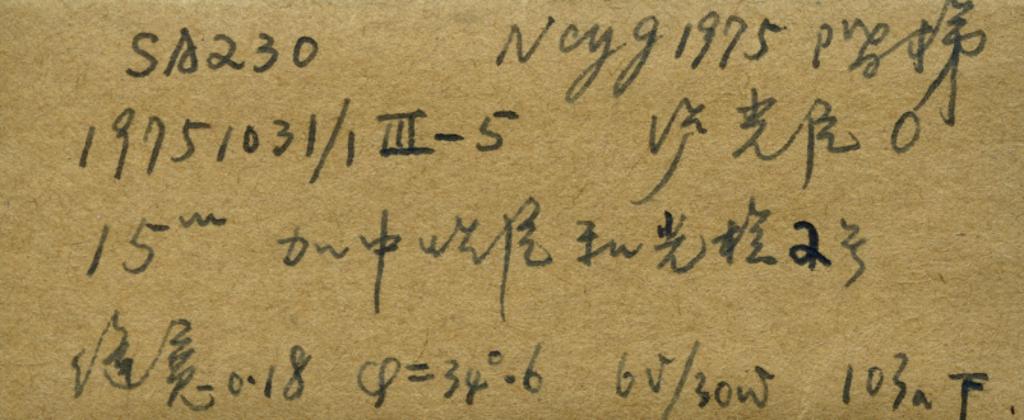 SA230 Ncyg 1975 阶梯
19751031/1 III-5 沪光尾 0
15ᵐ 加中性尾和光栏2号
缝宽 0.18 φ=34°.6 6V/30W 103a F.